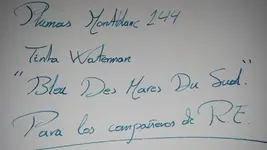 Plumas Montblanc 144
Tinta Waterman
"Bleu Des Mares Du Sud".
Para los compañeros de R.E.